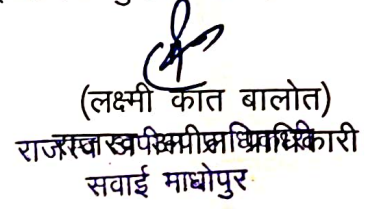 (लक्ष्मी कांत बालोत)
राजस्व अपील अधिकारी
सवाई माधोपुर